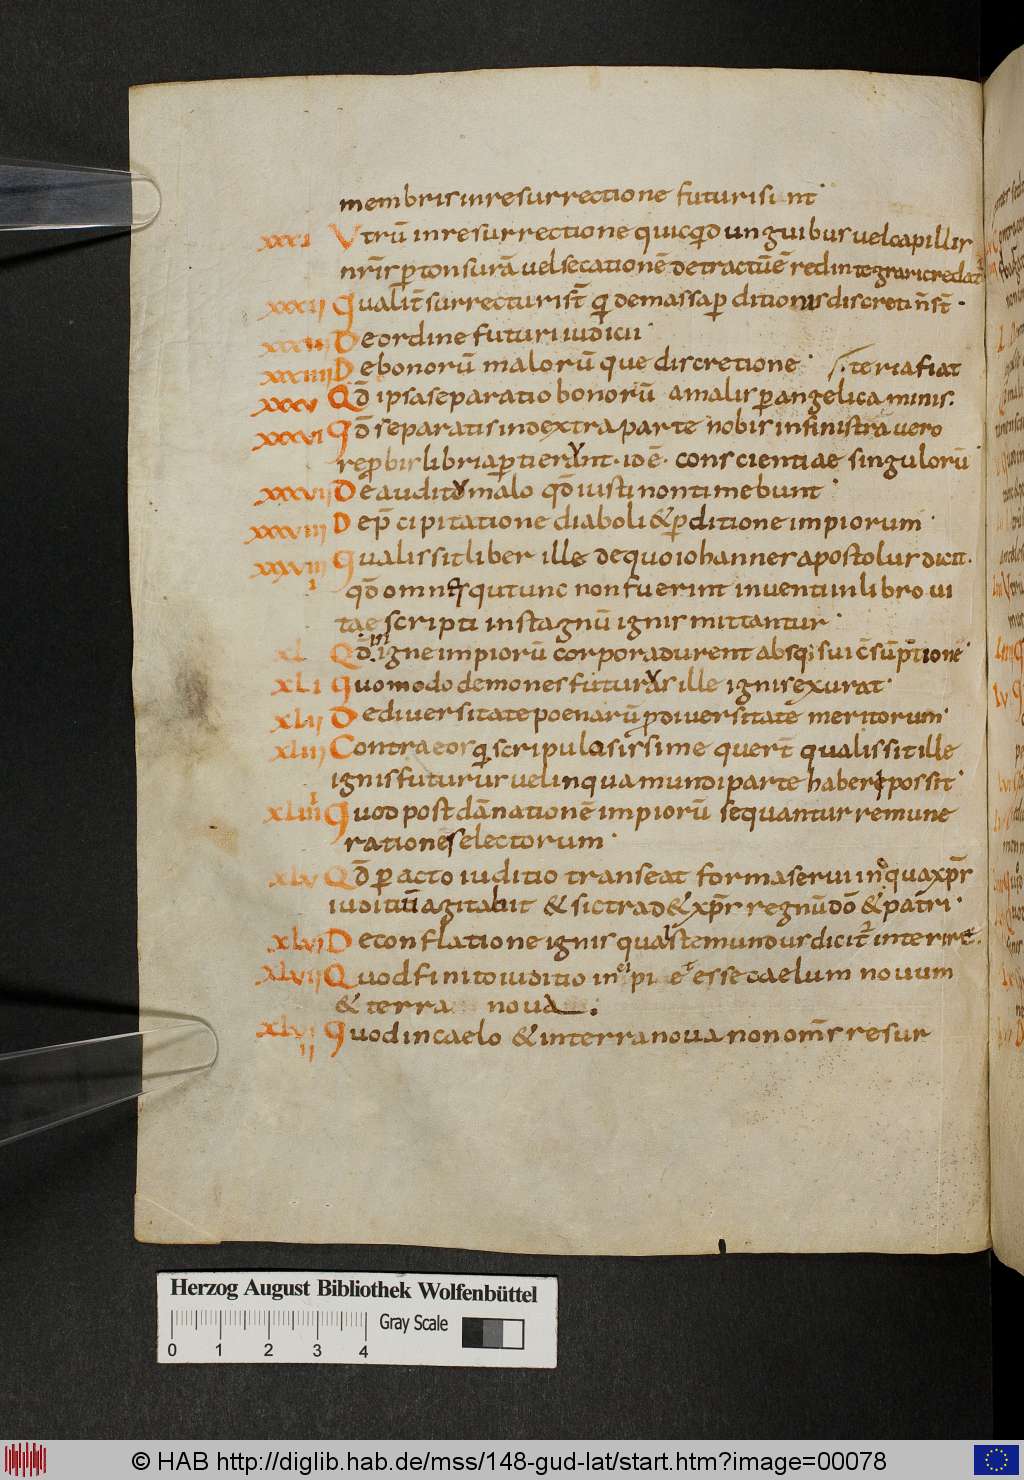 membris in resurrectione futuri sunt
xxxi Vtrū in resurrectione quicqđ unguibus vel capillis
nr̄is ꝑ tonsurā vel secationē detractū ē redintegrari credat̄
xxxii Qualit̄ surrecturi s̄t qui de massa ꝑditionis discreti n̄ s̄t
xxxiii De ordine futuri iudicii
xxxiiii De bonorū malorū que discretione teria fiat
xxxv Qđ ipsa separatio bonorū a malis ꝑ angelica minis
xxxvi Qđ separatis in dextra parte nobis in sinistra vero
reprobis libri aꝑti erunt id ē conscientiae singulorū
xxxvii De audito malo qđ iusti non timebunt
xxxviii De p̄cipitatione diaboli & ꝑditione impiorum
xxxviiii Qualis sit liber ille de quo iohannes apostolus dicit
qđ omnes qui tunc non fuerint inventi in libro vi
tae scripti in stagnū ignis mittantur
xl Qđ in igne impiorū corpora durent absq; sui c̄sūptione
xli Quomodo demones futurus ille ignis exurat
xlii De diversitate poenarū ꝓ diversitate meritorum
xliii Contra eos qui scripulosissime quert̄ qualis sit ille
ignis futurus vel in qua mundi parte haberi possit
xliiii Quod post dānationē impiorū sequantur remune
rationes electorum
xlv Qđ ꝑacto iuditio transeat forma servi in qua xp̄s
iuditiū agitabit & sic tradet xp̄s regnū dō & patri
xlvi De conflatione ignis qua iste mundus dicit̄ interire
xlvii Quod finito iuditio incipiet esse caelum novum
& terra nova
xlviii Quod in caelo & in terra nova non om̄s resur
Herzog August Bibliothek Wolfenbüttel
Gray Scale
0 1 2 3 4
© HAB http://diglib.hab.de/mss/148-gud-lat/start.htm?image=00078